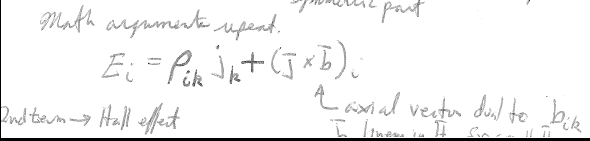 symmetric part
Math arguments repeat.
E_i = ρ_ik j_k + (j̄ × b̄)_i
2nd term → Hall effect
axial vector dual to b_ik
b̄ linear in H̄